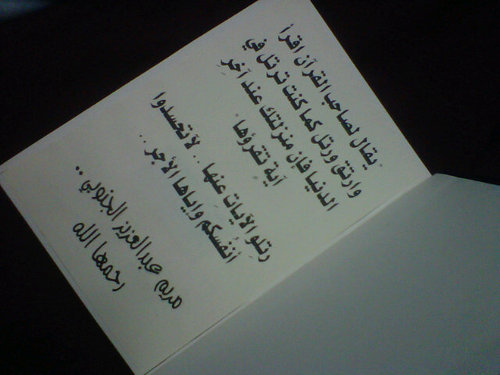 يقال لصاحب القرآن اقرأ
وارتق ورتل كما كنت ترتل في
الدنيا فإن منزلتك عند آخر
آية تقرؤها
رتلو الآيات عنها .. لا تحسدوا
أنفسكم وإياها الأجر ..
مريم عبدالعزيز الجنوبي ..
رحمها الله